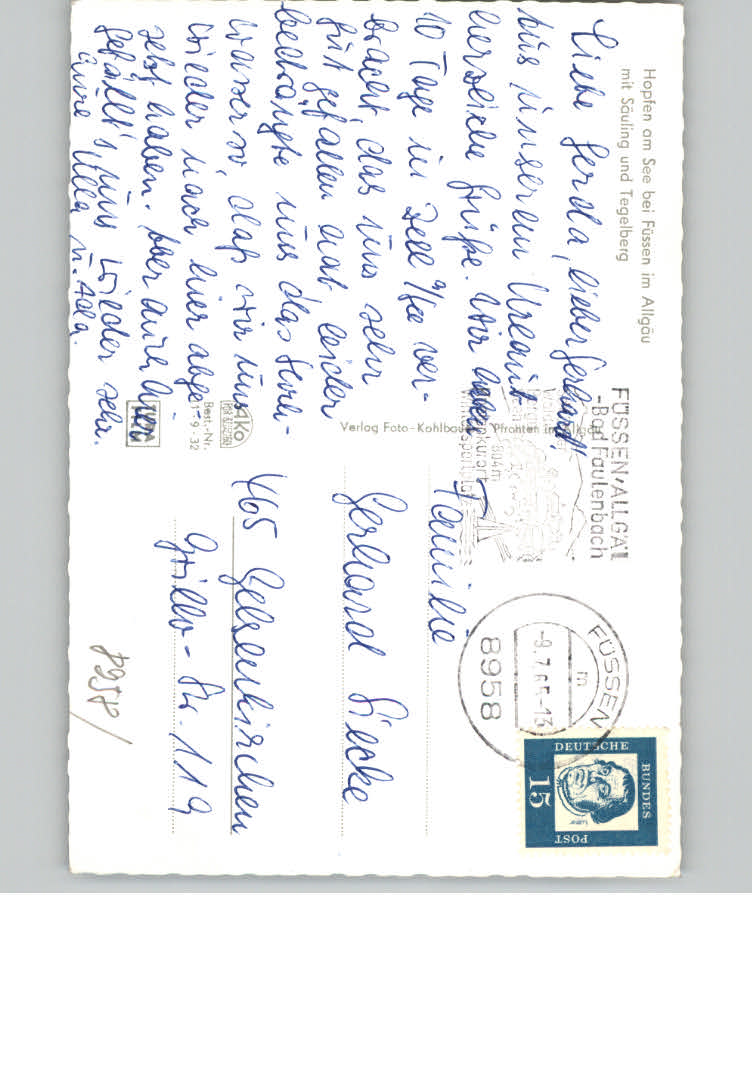 Hopfen am See bei Füssen im Allgäu
mit Säuling und Tegelberg
Liebe Gerda, lieber Gerhard!
Aus unserem Urlaub
herzliche Grüße. Wir haben
10 Tage in Zell a/See ver-
bracht, das uns sehr
gut gefallen hat leider
bedrängte uns das Hoch-
wasser so, daß wir uns
wieder nach hier abge-
setzt haben. Aber auch hier
gefällt's uns wieder sehr.
Eure Ulla u.
Verlag Foto-Kohlbauer Pfronten im Allgäu
AKo
Best.-Nr.
9. 32
FÜSSEN/ALLGÄU
-Bad Faulenbach
804m
FÜSSEN
m
-9.7.65-13
8958
DEUTSCHE
BUNDES
POST
15
Luther
Familie
Gerhard Siecke
465 Gelsenkirchen
Grillo-Str. 119
8958/